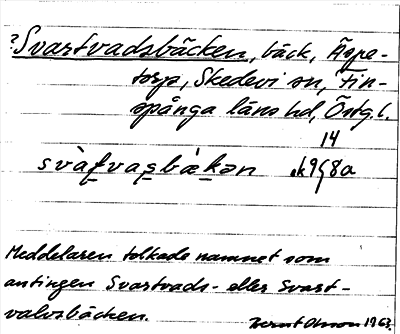 ? Svartvadsbäcken, bäck, Ägpe-
torp, Skedevi sn, Fin-
spånga läns hd, Östg. l.
14
svàf̱vas̱bàḵən
Meddelaren tolkade namnet som
antingen Svartvads- eller Svart-
valvsbäcken.
Bernt Olsson 1963.